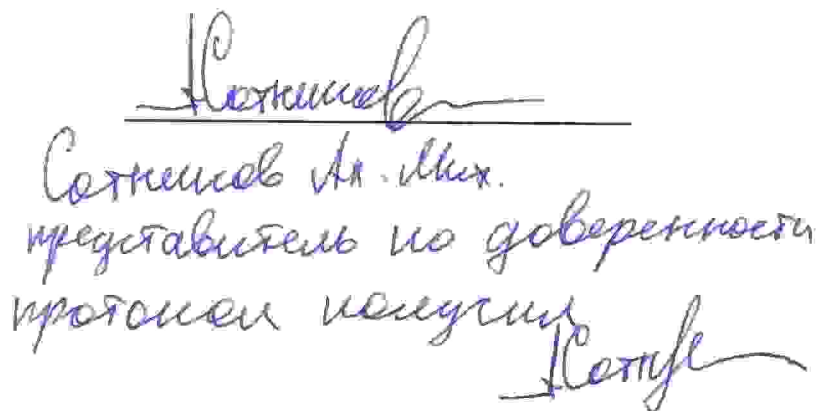 Сотников
Сотников Ал. Мих.
представитель по доверенности
протокол получил